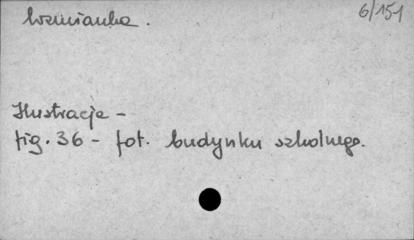 Wzmianka.
6/151
Ilustracje -
fig. 36 - fot. budynku szkolnego.